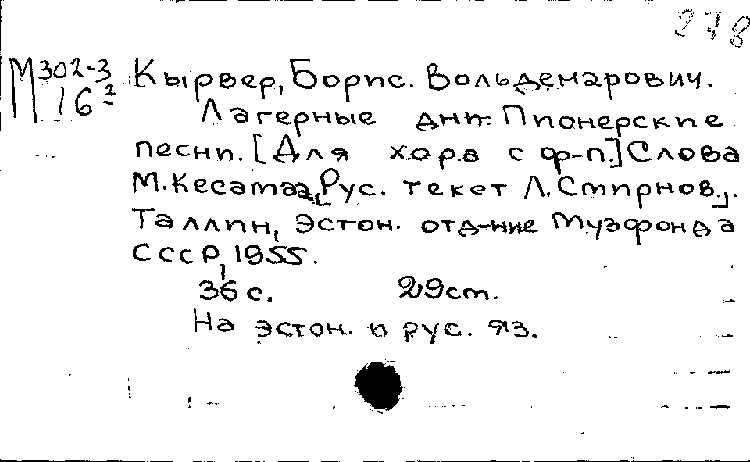 278
М302-3
16²
Кырвер, Борис. Вольдемарович.
Лагерные дни. Пионерские
песни. [Для хора с ф-п.] Слова
М. Кесамаа, [Рус. текст Л. Смирнов.].
Таллин, Эстон. отд-ние Музфонда
СССР, 1955.
36 с. 29 см.
На эстон. и рус. яз.